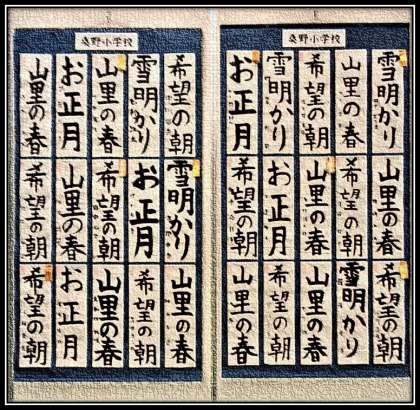 桑野小学校
希望の朝
雪明かり
山里の春
お正月
山里の春
雪明かり
お正月
希望の朝
山里の春
希望の朝
山里の春
希望の朝
山里の春
お正月
希望の朝
桑野小学校
雪明かり
山里の春
希望の朝
雪明かり
お正月
山里の春
希望の朝
山里の春
お正月
希望の朝
希望の朝
雪明かり
山里の春
希望の朝
山里の春